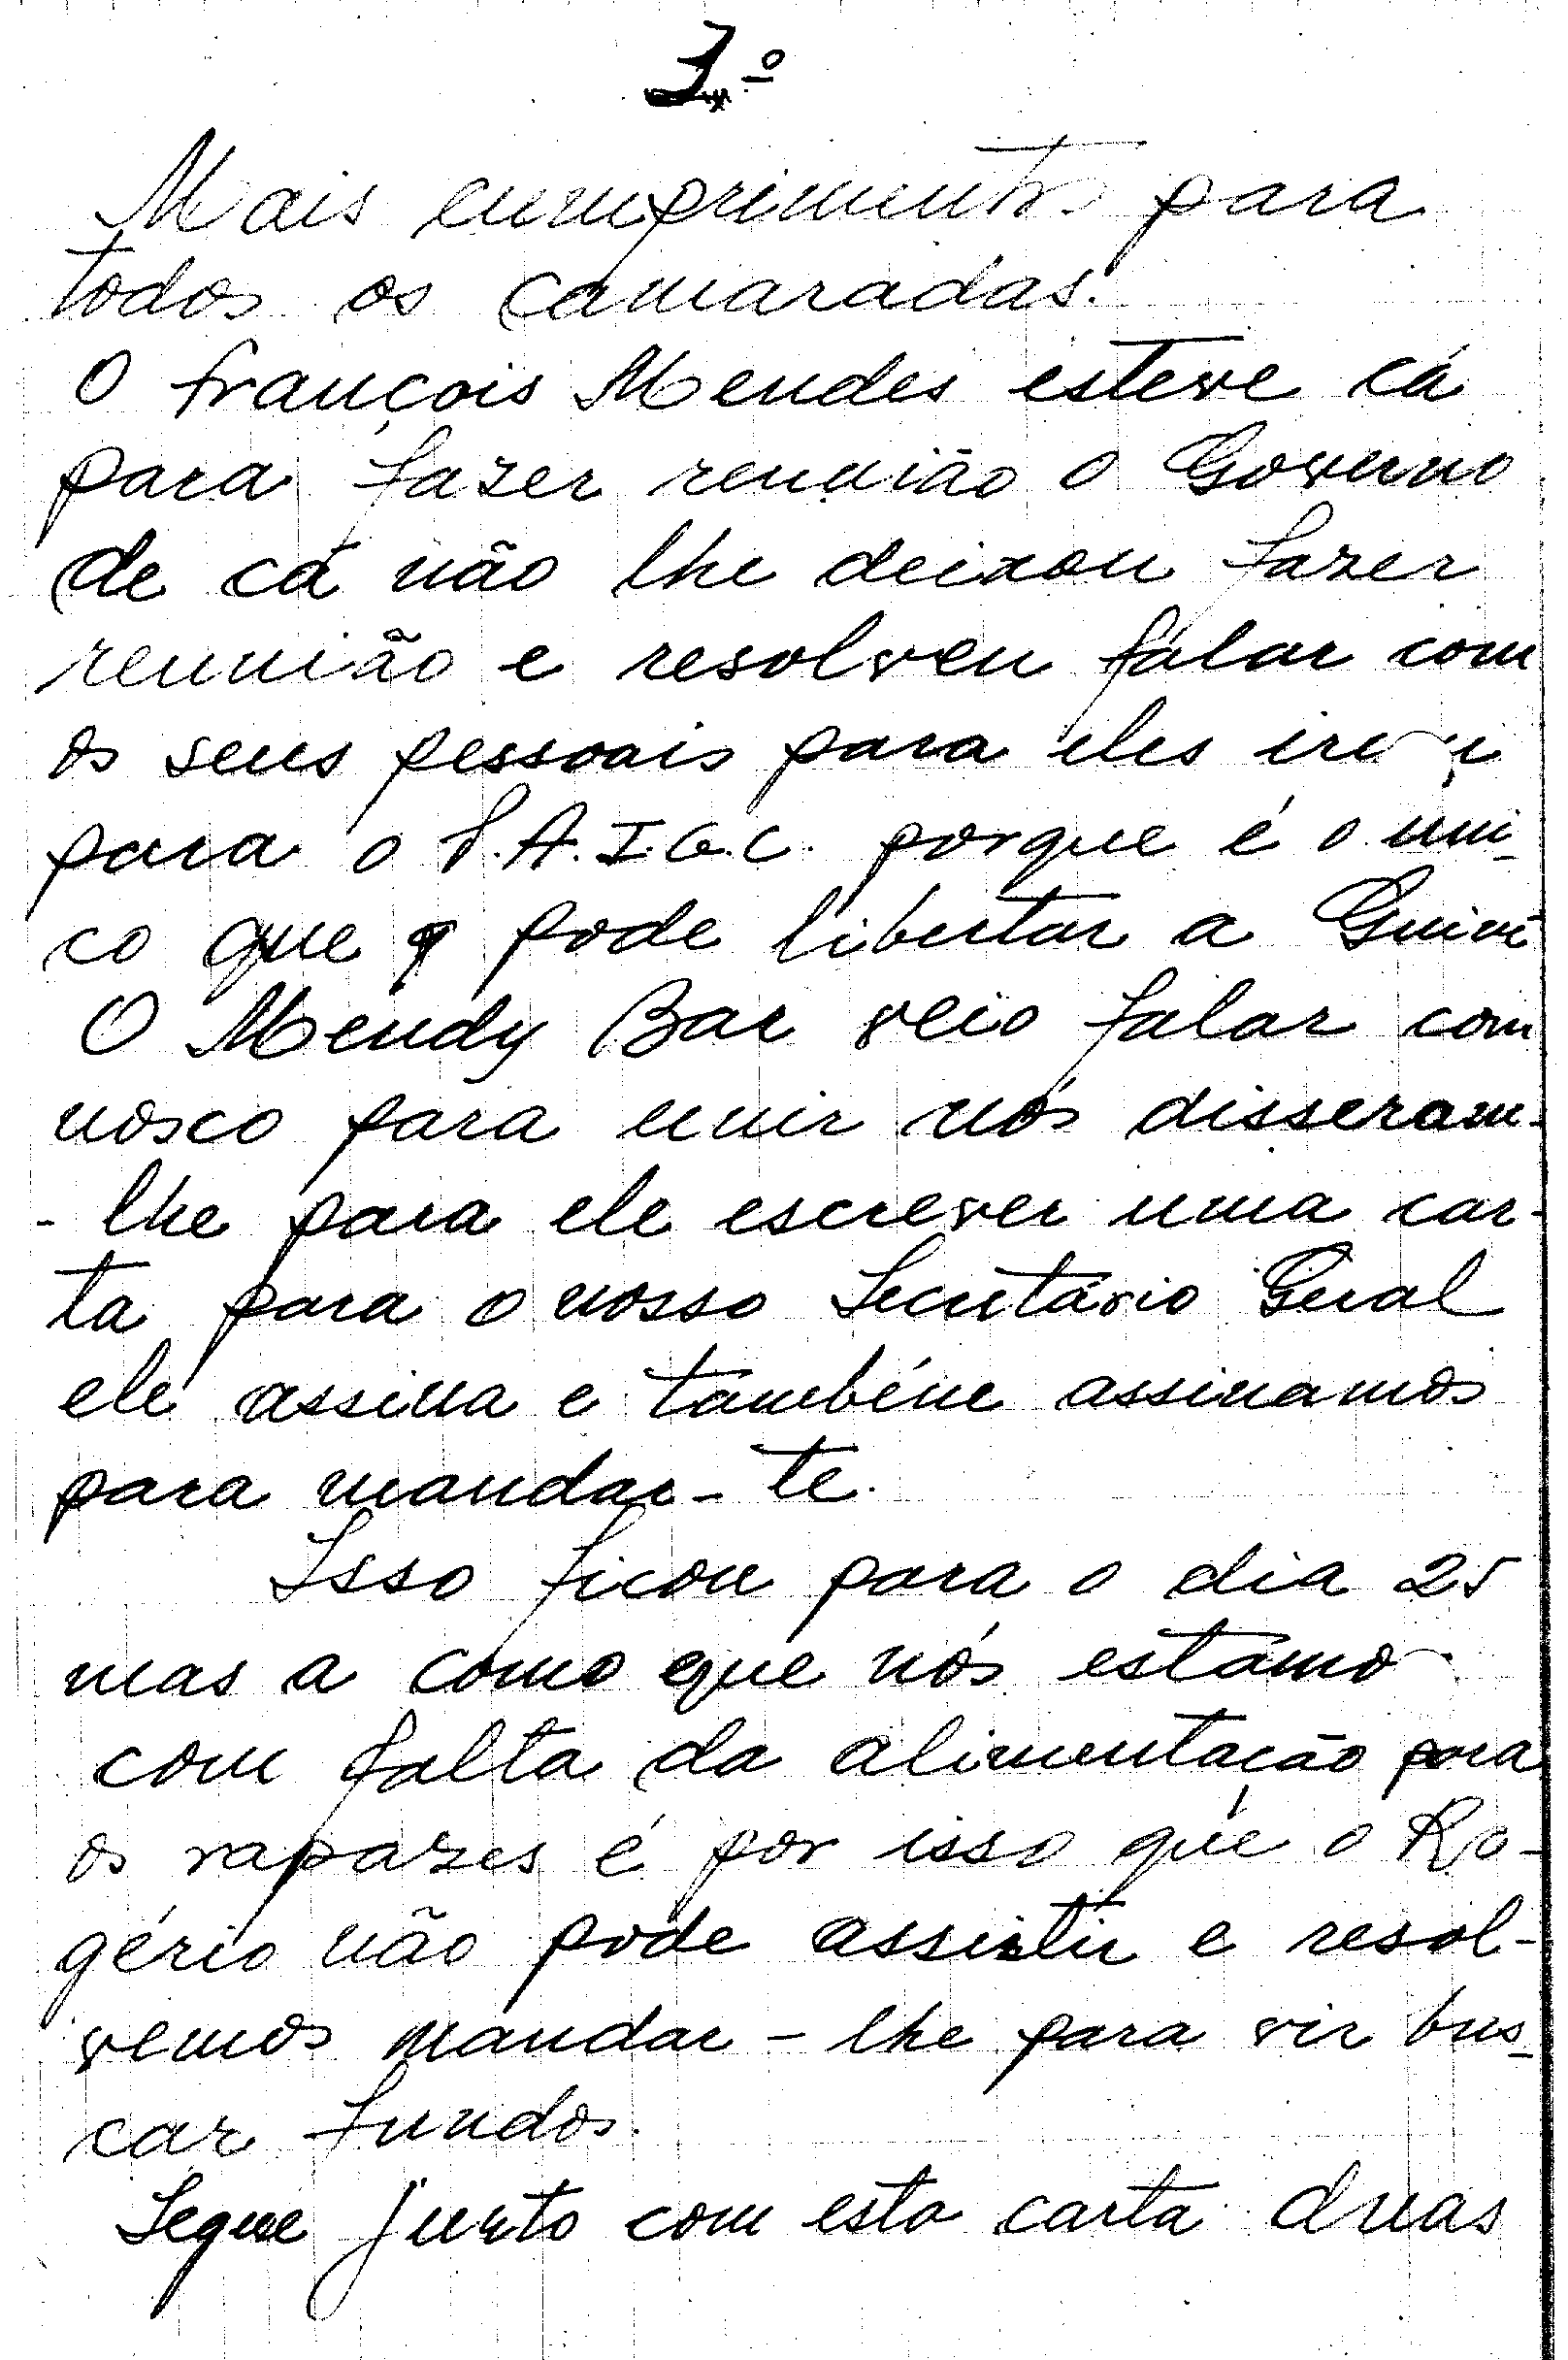 3.º
Mais cumprimentos para
todos os camaradas.
O François Mendes esteve cá
para fazer reunião o Governo
de cá não lhe deixou fazer
reunião e resolveu falar com
os seus pessoais para eles irem
para o P.A.I.G.C. porque é o uni-
co que pode libertar a Guiné
O Mendy Bar veio falar com
nosco para unir nós disseram-
-lhe para ele escrever uma car-
ta para o nosso Secretário Geral
ele assina e também assinamos
para mandar-te.
Isso ficou para o dia 25
mas a como que nós estamos
com falta da alimentação para
os rapazes é por isso que o Ro-
gério não pode assistir e resol-
vemos mandar-lhe para vir bus-
car fundos.
Segue junto com esta carta duas